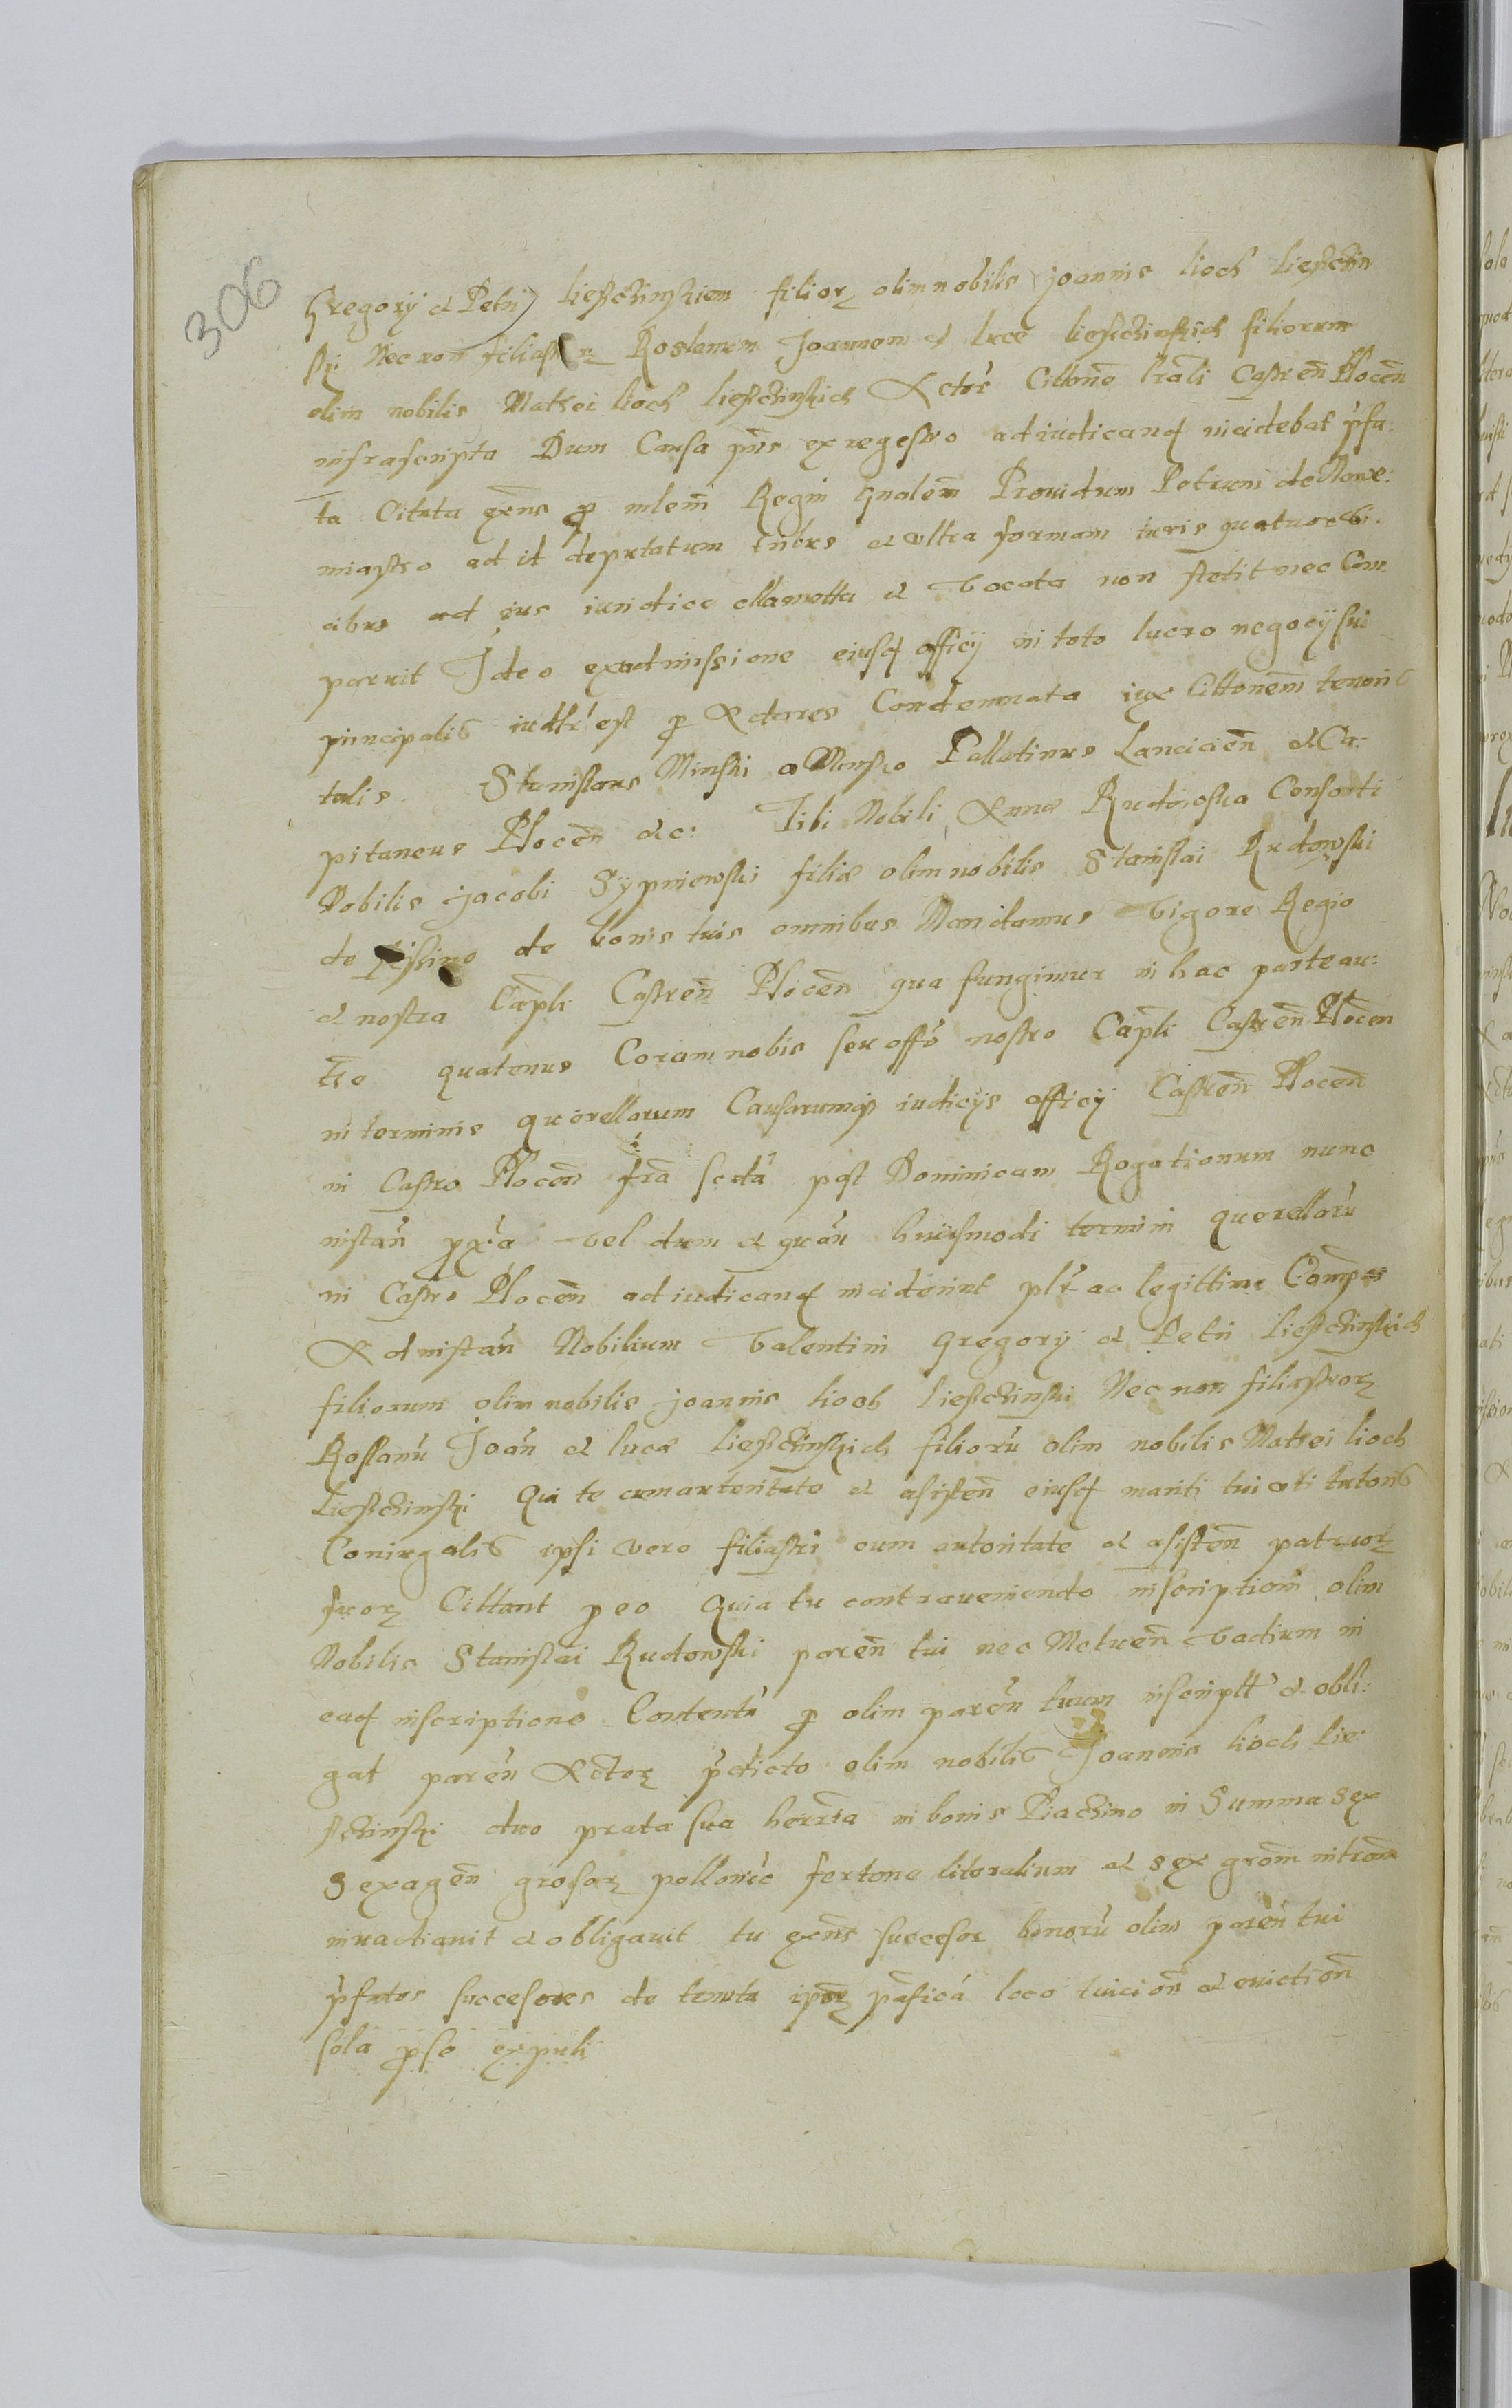 306
Gregorÿ et Petri Lieschinskiem filior olim nobilis Joannis lioch Lieschin
ski Nec non filiastr Roslanum Joannem et luce lieschinskich filiorum
olim nobilis Mathei lioch Lieschinskich Actor Cittone lrali Castren Plocen
infrascripta Dum Causa pns ex regestro adiudicand incidebat pfa:
ta Citata exns p mlem Regni gnalem Providum Petrum de Nowe:
miastro ad id deputatum tribus et ultra formam iuris quatuor vi:
cibus ad ius iuridice cllamatta et vocata non stetit nec Com
paruit Ideo ex admissione eiusd officÿ in toto lucro negocÿ sui
principalis iudtr est p Actores Condemnata iux Cittonem tenoris
talis. Stanislaus Minski a Minsko Pallatinus Lancicien et Ca:
pitaneus Plocen etc: Tibi Nobili Anna Rudowska Consorti
Nobilis Jacobi Sÿpniewski filiæ olim nobilis Stanislai Rudowski
de de bonis tuis omnibus Mandamus Vigore Regia
et nostra Capli Castren Plocen qua fungimur in hac parte au:
tte quatenus Coram nobis seu offo nostro Capli Castren Plocen
in terminis querellarum Causarumq iudicÿs officÿ Castren Plocen
in Castro Plocen fra scda post Dominicam Rogationum nunc
instan pxa vel dum et quan huiusmodi termini querellaru
in Castro Plocen adiudicand inciderint plr ac legittime Compas
Ad instan Nobilium Valentini Gregorÿ et Petri Lieschinskich
filiorum olim nobilis Joannis lioch Lieschinski Nec non filiastror
Roslanu Joan et lucæ Lieschinskich filioru olim nobilis Mathei lioch
Lieschinski Qui te cum autoritate et asisten eiusd mariti tui uti tutoris
Coniugalis ipsi vero filiastri cum autoritate et asisten patruor
suor Cittant peo Quia tu contraveniendo inscriptioni olim
Nobilis Stanislai Rudowski paren tui nec Metuen Vadium in
ead inscriptione Contentu p olim paren tuum inscriptt et obli:
gat paren Actor pdicto olim nobilis Joannis lioch Lie:
schinski duo prata sua herria in bonis Piachino in Summa sex
sexagen grosor pollonic fertone litoralium et sex grom
invadiavit et obligavit tu exns succesor bonoru olim paren tui
pfatos succesores de tenuta ipor pafica loco tuicion et eviction
sola p se expuli